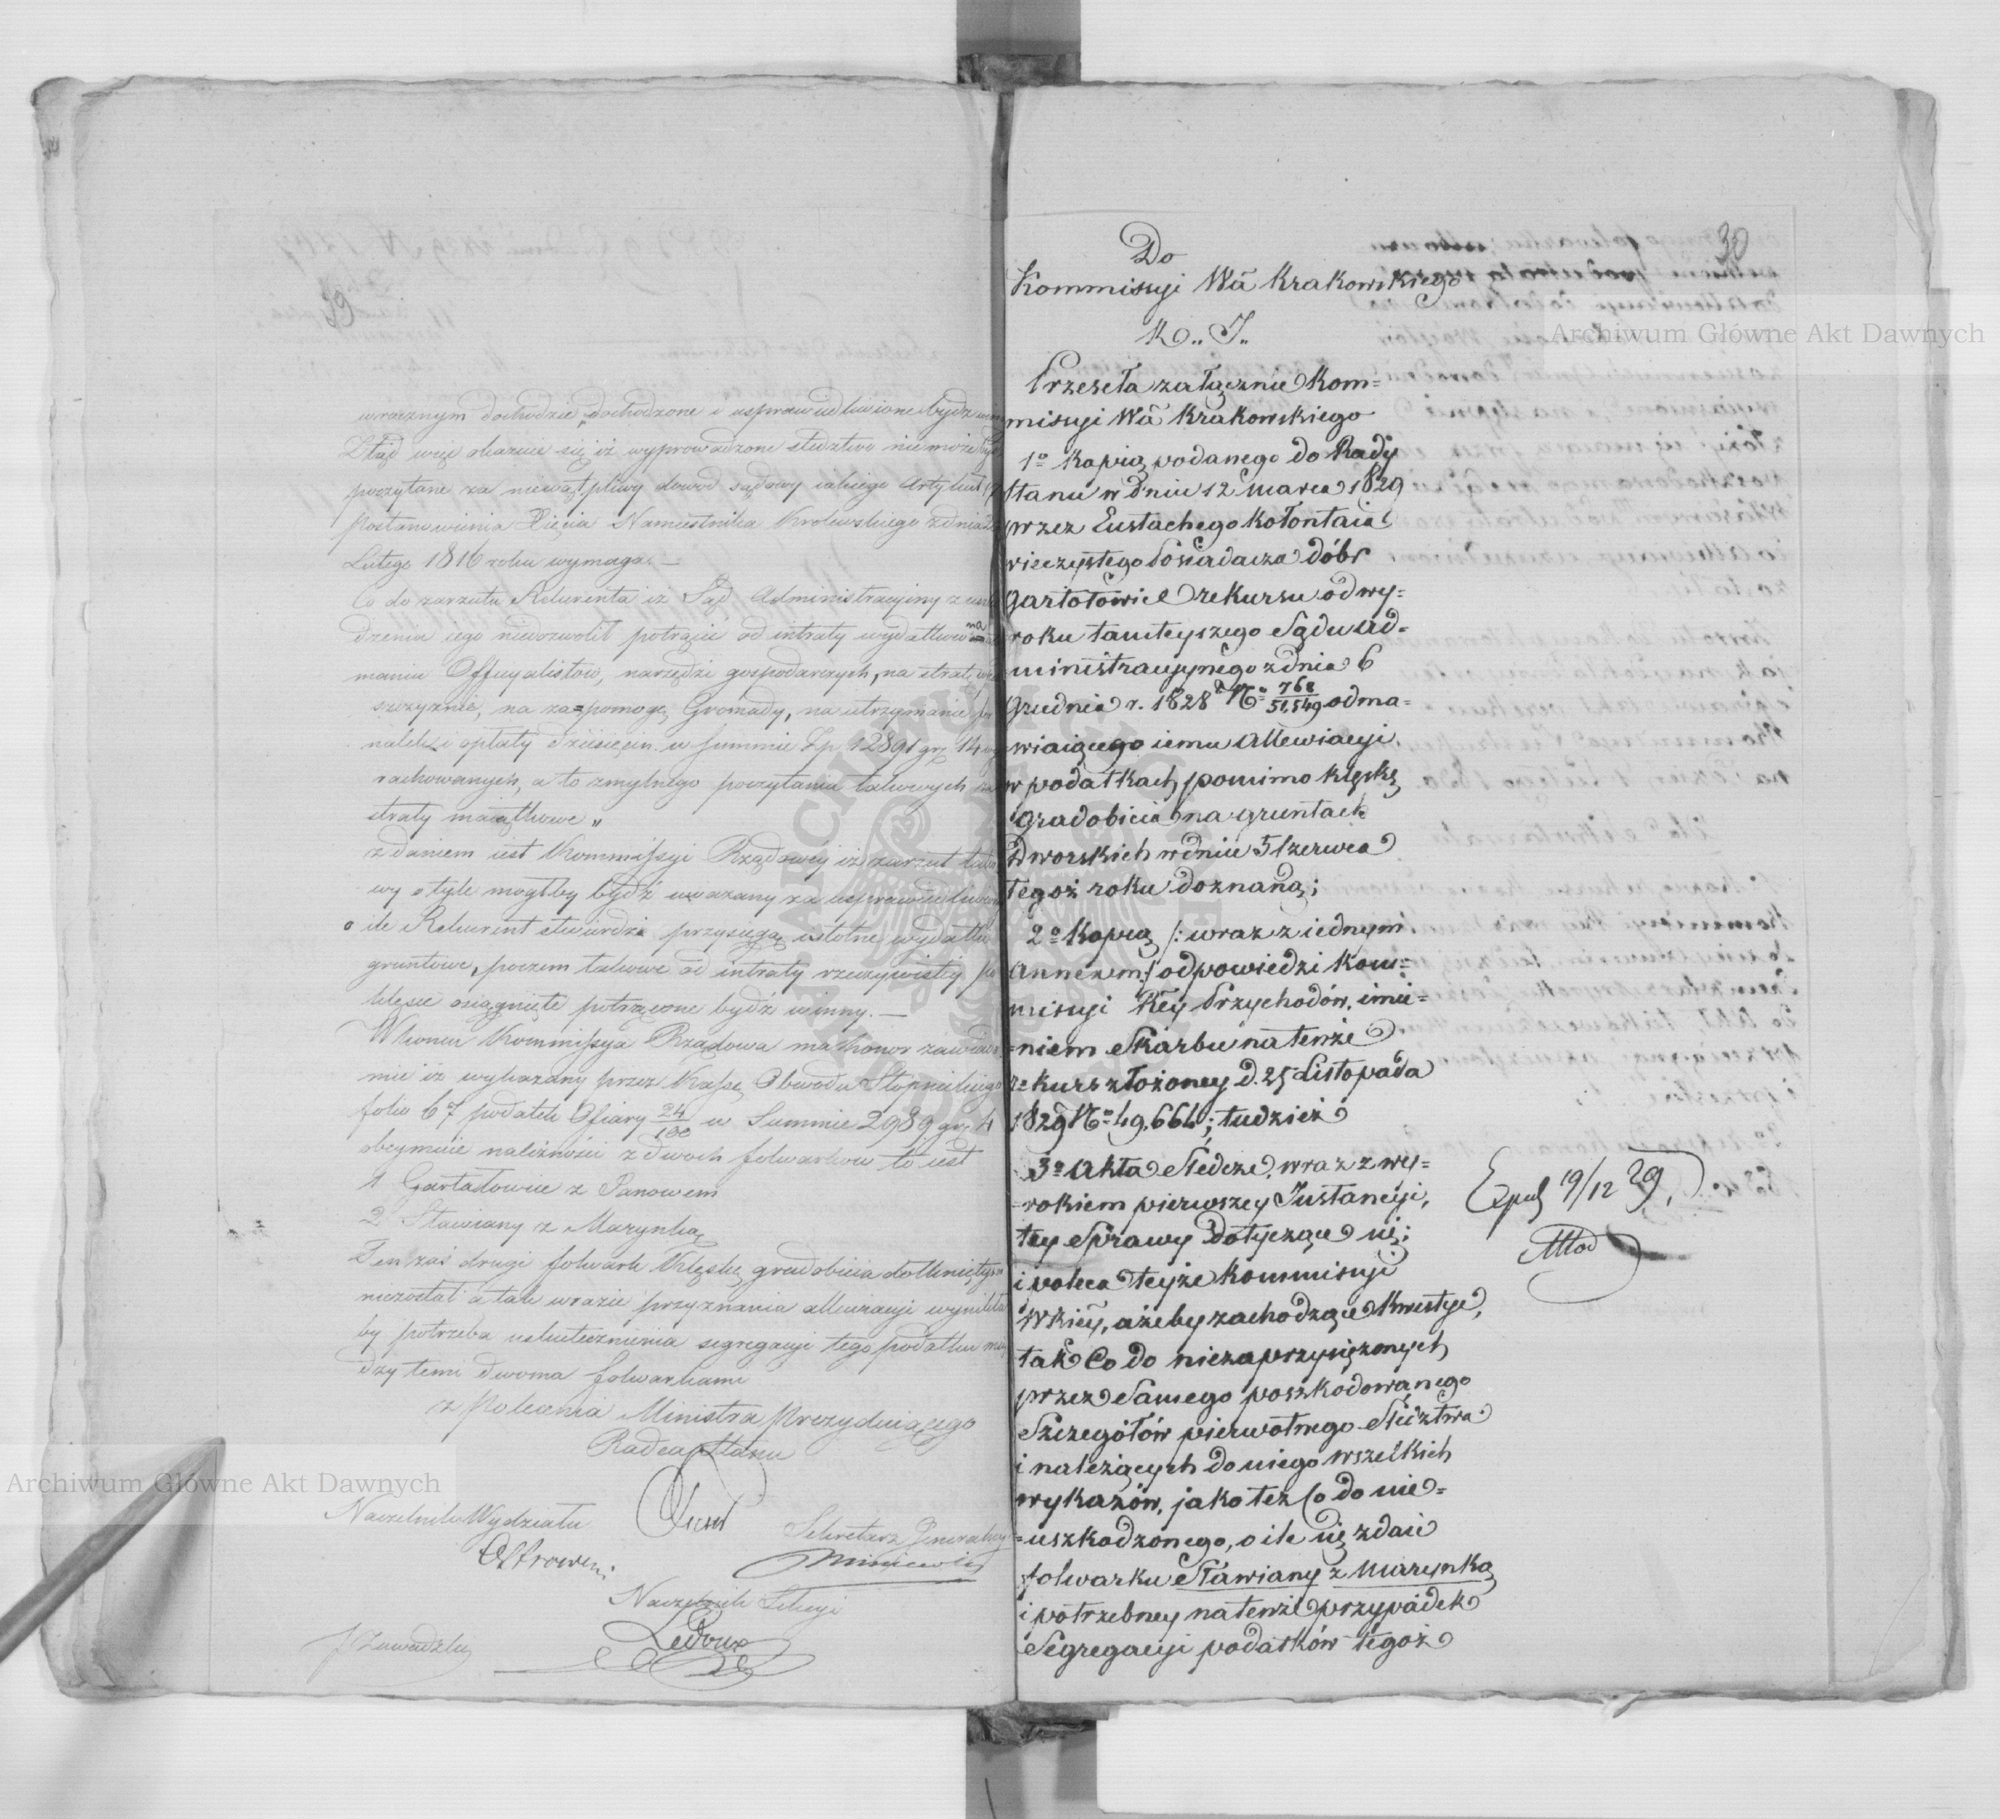 wrocznym dochodzie, dochodzone i usprawiedliwione bydź
Ztąd więc okazuie się iż wyprowadzone sledztwo niemoże bydź
poczytane za niewątpliwy dowod sądowy iakiego Artykuł
Postanowienia Xięcia Namiestnika Krolewskiego zdnia
Lutego 1816 roku wymaga. —
Co do zarzutu Rekurenta iż Sąd Administracyiny
dzenia iego niedozwolił potrącić od intraty wydatków na
maniu Officyalistów, narzędzi gospodarczych, na strat
szczyznie, na zapomogę Gromady, na utrzymanie
nalekzi opłaty dziesięcin w summie Zp 12891 gr 14
rachowanych, a to zmylnego poczytania takowych za
straty maiątkowe „
zdaniem iest Kommissyi Rządowey iż zarzut tako
wy o tyle mogłby bydź uważany za usprawiedliwiony
o ile Rekurent stwierdzi przysięgą istotne wydatki
gruntowe, poczem takowe od intraty rzeczywistey po
klęsce osiągnięte potrącone bydź winny. —
Wkońcu Kommissya Rządowa ma honor zawiado
mić iż wykazany przez Kassę Obwodu Stopnickiego
folio 67 podatek Ofiary 24/100 w Summie 2989 gr 4
obeymuie należności z dwoch folwarkow to iest
1 Gartatowice z Panowem
2 Stawiany z Marynką
Ten zaś drugi folwark Klęską gradobicia dotknięty
niezostał a tak wrazie przyznania allewiacyi wynikła
by potrzeba uskutecznienia segregacyi tego podatku mię
dzy temi dwoma folwarkami
z Polecenia Ministra Prezyduiącego
Radca Stanu
Naczelnik Wydziału
Sekretarz Jeneralny
Naczelnik Sekcyi
Ledoux
J Zawadzki
30
Do
Kommissyi Wã Krakowskiego
K.. J..
Przeseła załącznie Kom=
missyi Wã Krakowskiego
1º Kopią podanego do Rady
Stanu w dniu 12 Marca 1829
przez Eustachego Kołontaia
wieczystego Posiadacza dóbr
Gartotowice rekursu od wy=
roku tamteyszego Sądu Ad=
ministracyjnego z dnia 6
Grudnia r. 1828 Nº 768/51,549 odma=
wiaiącego iemu Allewiacyi
w podatkach, pomimo klęskę
Gradobicia na gruntach
Dworskich w dniu 5 Czerwca
tegoż roku doznaną;
2º Kopią /: wraz z iednym
Annexem :/ odpowiedzi Kom=
missyi Rey Przychodów, imie=
=niem Skarbu na tenże
rekurs złożoney d. 25 Listopada
1829 Nº 49,664; tudzież
3º Akta Śledcze, wraz z wy=
=rokiem pierwszey Instancyi,
tey Sprawy dotyczące się;
i poleca teyże Kommissyi
Wkiey, ażeby zachodzące Kwestye,
tak Co do niezaprzysiężonych
przez Samego poszkodowanego
Szczegółów pierwotnego Śledztwa
i należących do niego wszelkich
wykazów, jako też Co do nie=
=uszkodzonego, o ile się zdaie
folwarku Stawiany z Marynką
i potrzebney na tenże przypadek
Segregacyi podatków tegoż
Exped 19/12 29.
Archiwum Główne Akt Dawnych
Archiwum Główne Akt Dawnych